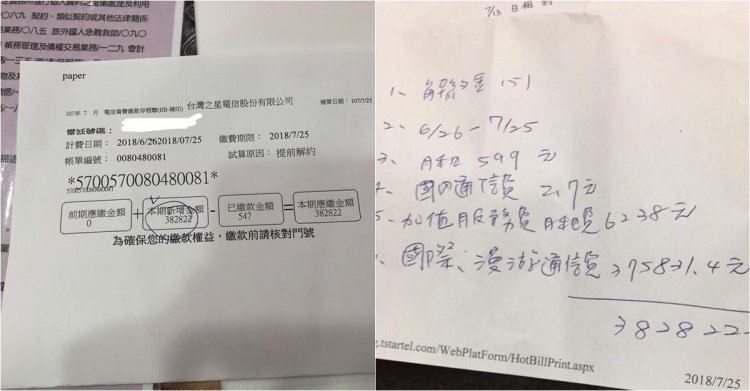 務所進行個人資料之蒐集處理及利用
○六九 契約、類似契約或其他法律關係
業務/○八五 旅外國人急難救助/○九○
帳務管理及債權交易業務/一二九 會計
paper
107年 7 月 電信資費繳款存根聯(HB-補印) 台灣之星電信股份有限公司 補單日期：107/7/25
電話號碼：
計費日期：2018/6/262018/07/25 繳費期限：2018/7/25
帳單編號： 0080480081 試算原因：提前解約
*5700570080480081*
5700570080480081
前期應繳金額 0 + 本期新增金額 382822 - 已繳款金額 547 = 本期應繳金額 382822
為確保您的繳款權益，繳款前請核對門號
7/13
1、解約金 151
2、6/26－7/25
3、月租 599 元
4、國內通信費 2.7元
5、加值服務費月租費 6238元
、國際、漫游通信費 375831.4元
382822
g.tstartel.com/WebPlatForm/HotBillPrint.aspx
2018/7/25